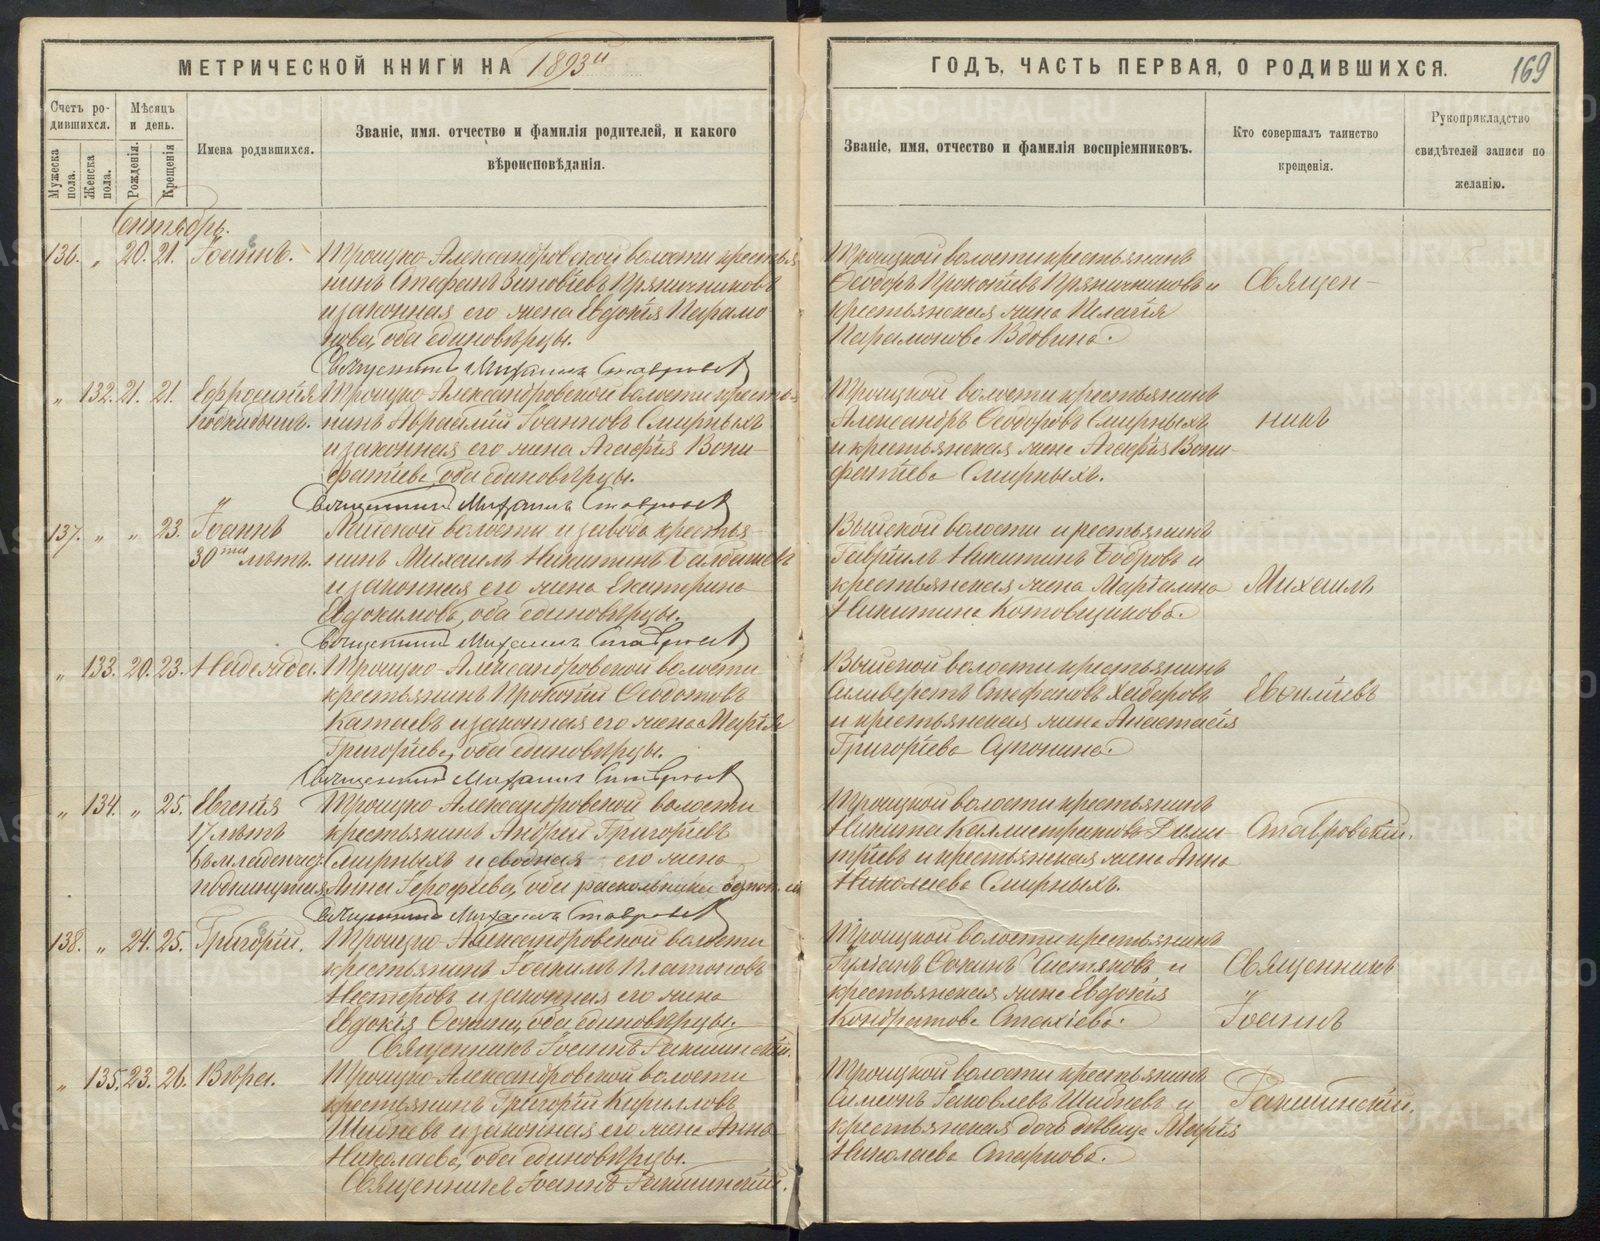 МЕТРИЧЕСКОЙ КНИГИ НА 1893й
Счетъ родившихся.
Мужеска пола.
Женска пола.
Мѣсяцъ и день.
Рожденія.
Крещенія
Имена родившихся.
Званіе, имя, отчество и фамилія родителей, и какого
вѣроисповѣданія.
Сентябрь.
136. „ 20. 21. Іоаннъ. Троицко-Александровской волости крестья
нинъ Стефанъ Зиновіевъ Пряничниковъ
и законная его жена Евдокія Парамо
нова, оба единовѣрцы.
Священникъ Михаилъ Ставровскій
„ 132. 21. 21. Евфросинія Троицко-Александровской волости крестья
подкидышъ. нинъ Авраамій Іоанновъ Смирныхъ
и законная его жена Агафія Вони-
фатіева, оба единовѣрцы.
Священникъ Михаилъ Ставровскій
137. „ „ 23. Іоаннъ волости и завода крестья
30ти лѣтъ. нинъ Михаилъ Никитинъ
и законная его жена Екатерина
Евдокимова, оба единовѣрцы.
Священникъ Михаилъ Ставровскій
„ 133. 20. 23. Надежда. Троицко-Александровской волости
крестьянинъ Прокопій Ѳедотовъ
Катаевъ и законная его жена Марія
Григоріева, оба единовѣрцы.
Священникъ Михаилъ Ставровскій
„ 134. „ 25. Евгенія Троицко-Александровской волости
17 лѣтъ крестьянинъ Андрей Григоріевъ
Смирныхъ и сводная его жена
Анна Ерофіева, оба раскольники
Священникъ Михаилъ Ставровскій
138. „ 24. 25. Григорій. Троицко-Александровской волости
крестьянинъ Іоакимъ Платоновъ
Нестеровъ и законная его жена
Евдокія оба единовѣрцы.
Священникъ Іоаннъ
„ 135. 23. 26. Вѣра. Троицко-Александровской волости
крестьянинъ Григорій Кирилловъ
и законная его жена Анна
Николаева, оба единовѣрцы.
Священникъ Іоаннъ
ГОДЪ, ЧАСТЬ ПЕРВАЯ, О РОДИВШИХСЯ.
169
Званіе, имя, отчество и фамилія воспріемниковъ.
Кто совершалъ таинство
крещенія.
Рукоприкладство
свидѣтелей записи по
желанію.
Троицкой волости крестьянинъ
Ѳеодоръ Прокопіевъ Пряничниковъ и
крестьянская жена Пелагія
Парамонова Вдовина.
Троицкой волости крестьянинъ
Александръ Ѳеодоровъ Смирныхъ
и крестьянская жена Агафія Вони-
фатіева Смирныхъ.
Выйской волости крестьянинъ
Гавріилъ Никитинъ Бобровъ и
крестьянская жена
Никитина Котовщикова.
Выйской волости крестьянинъ
Силиверстъ Стефановъ Хабаровъ
и крестьянская жена Анастасія
Григоріева Супонина.
Троицкой волости крестьянинъ
Никита Каллистратовъ Дими-
тріевъ и крестьянская жена Анна
Николаева Смирныхъ.
Троицкой волости крестьянинъ
Чистяковъ и
крестьянская жена Евдокія
Кондратова Стахіева.
Троицкой волости крестьянинъ
Симеонъ Іаковлевъ и
крестьянская дочь дѣвица Марія
Николаева Старкова.
Священ-
никъ
Михаилъ
Евоиліевъ
Ставровскій.
Священникъ
Іоаннъ
METRIKI.GASO-URAL.RU